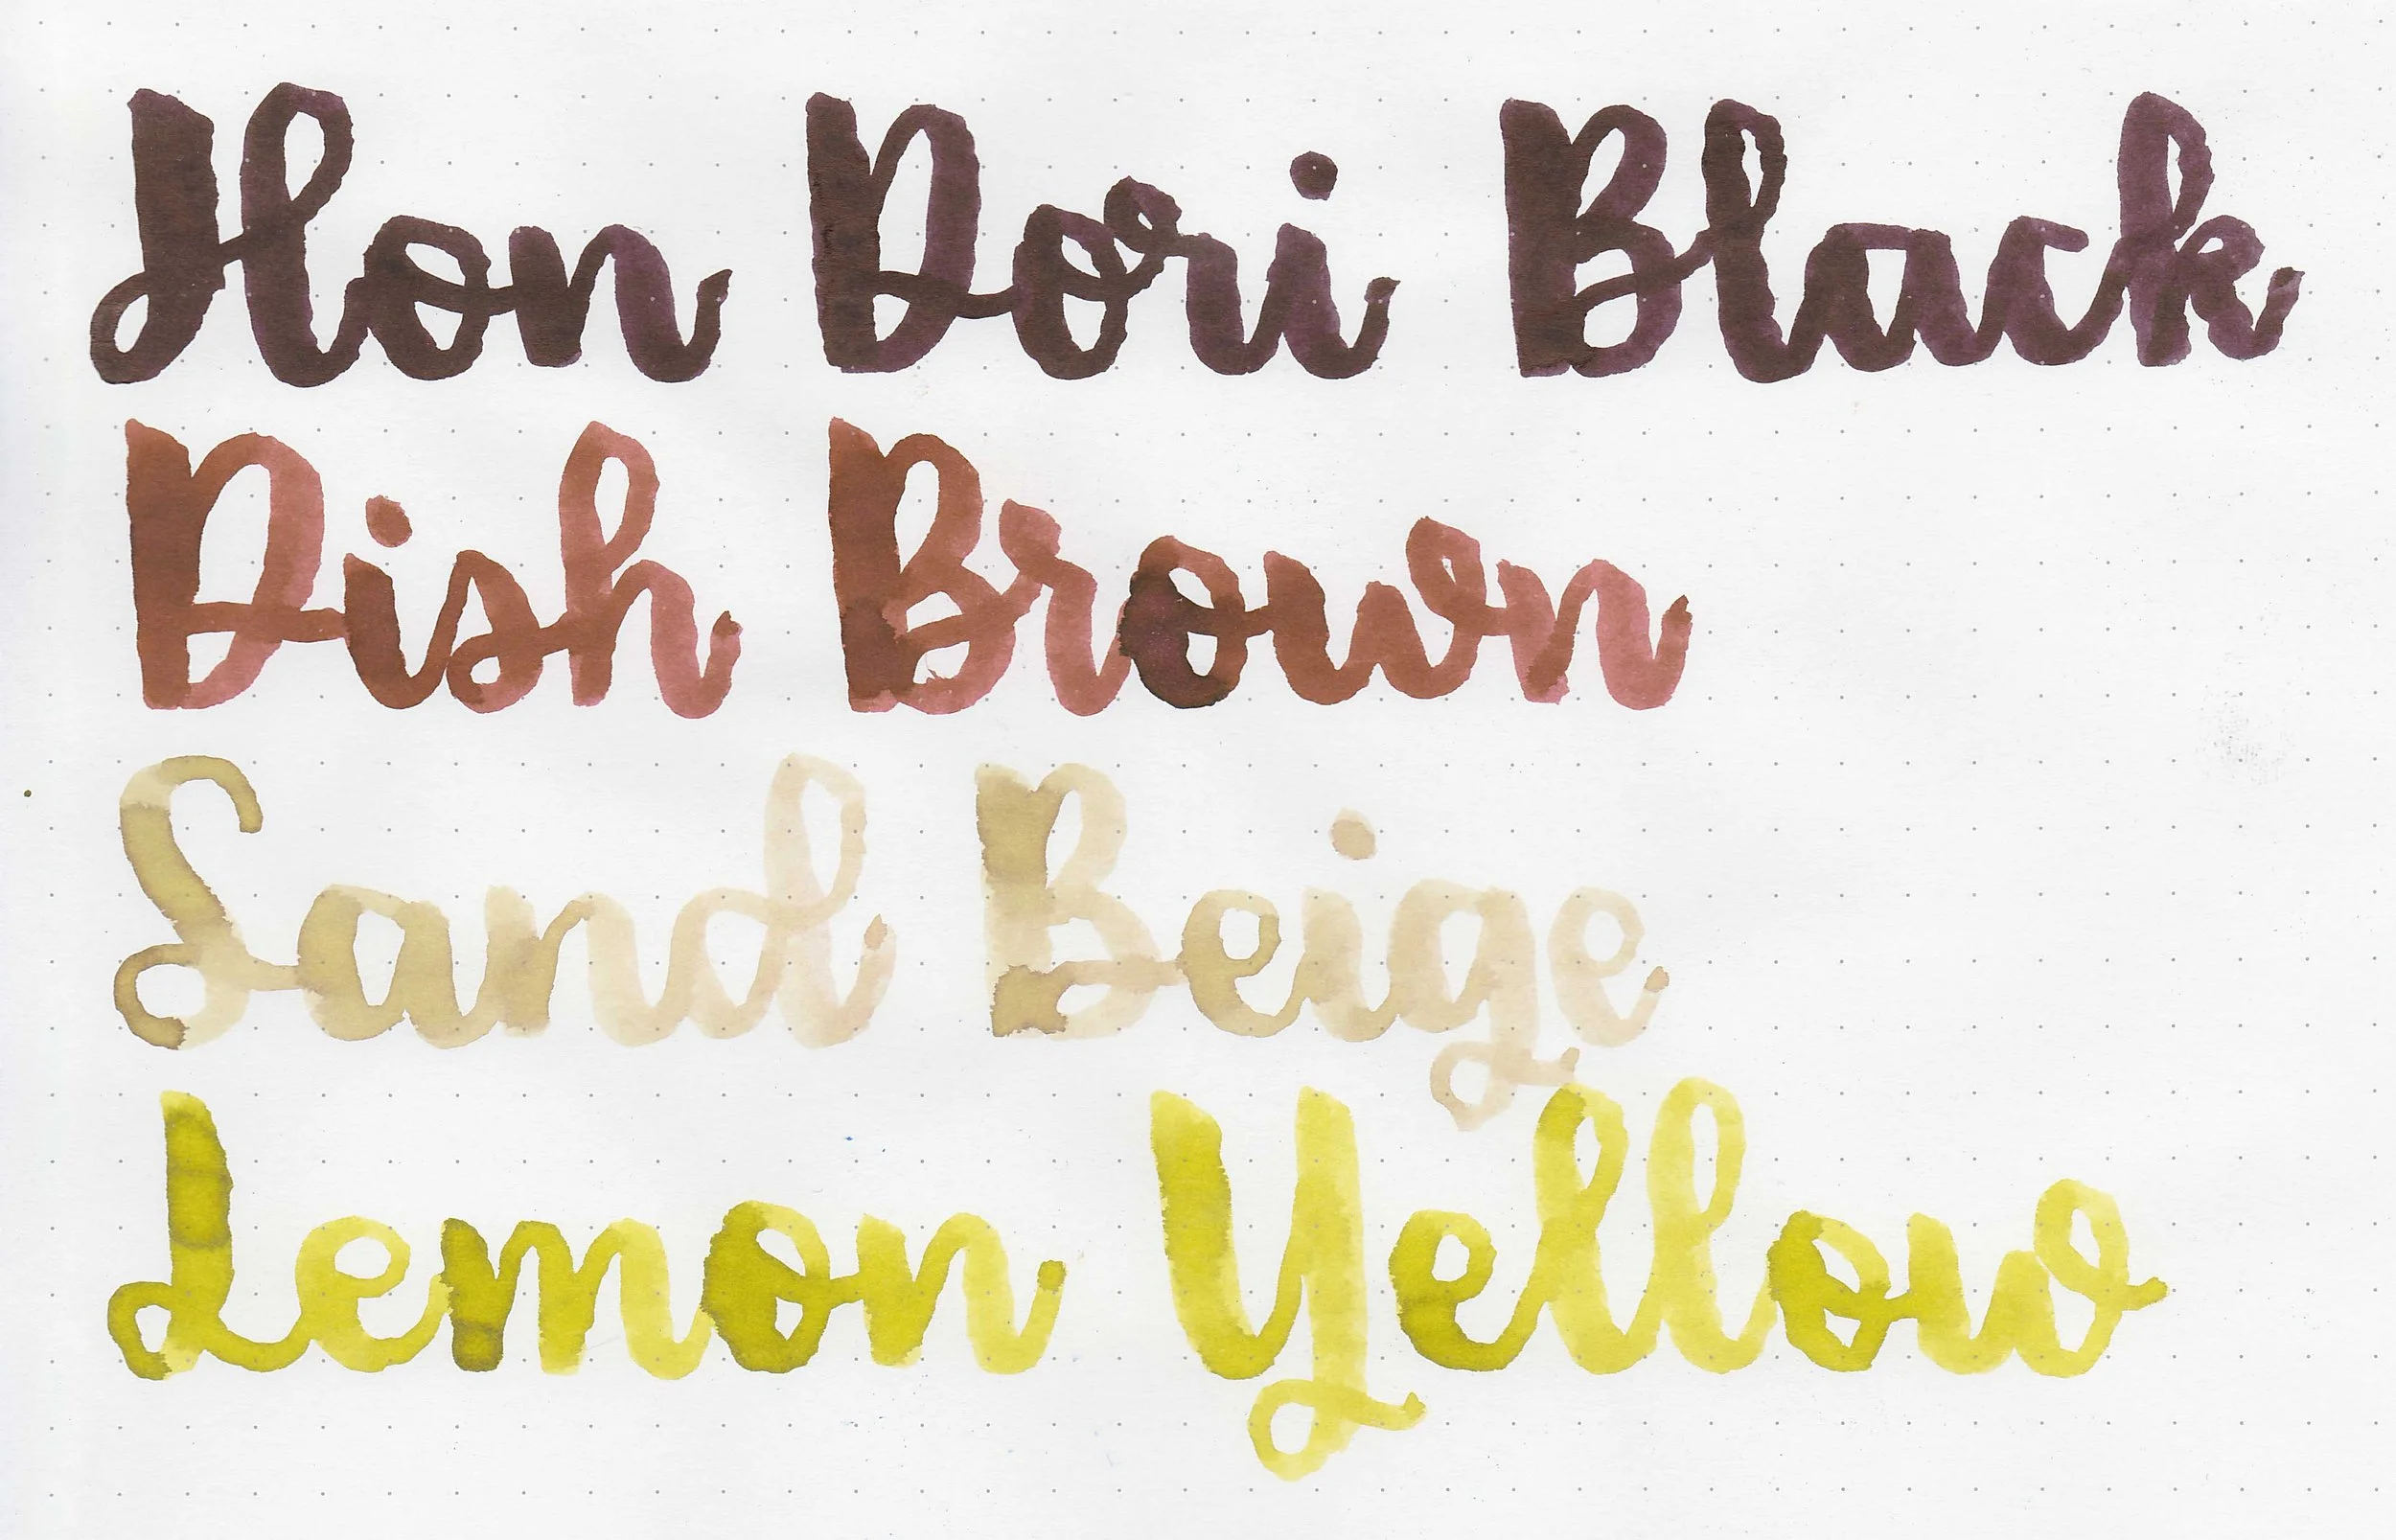 Hon Dori Black
Dish Brown
Sand Beige
Lemon Yellow